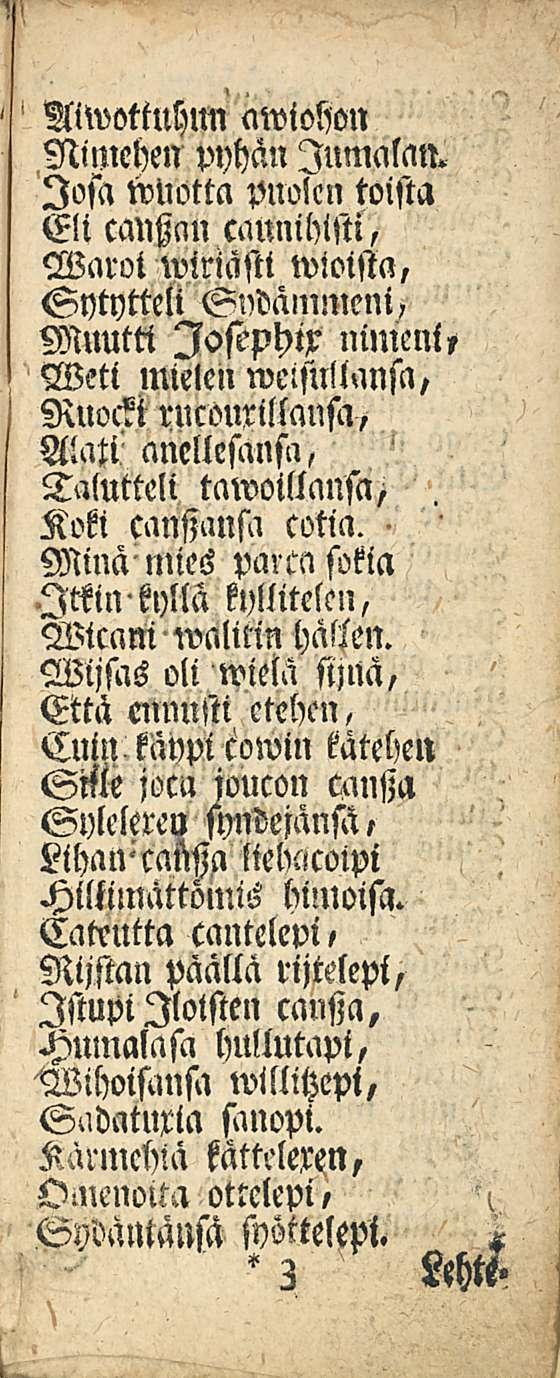 Aiwottuhun awiohon
Nimehen pyhän Jumalan.
Josa wuotta puolen toista
Eli canßan caunihisti,
Waroi wiriästi wioista,
Sytytteli Sydämmeni,
Muutti Josephix nimeni,
Weti mielen weisullansa,
Ruocki rucouxillansa,
Alati anellesansa,
Talutteli tawoillansa,
Koki canßansa cotia.
Minä mies parca sokia
Itkin kyllä kyllitelen,
Wicani walitin hällen.
Wijsas oli wielä sijnä,
Että ennusti etehen,
Cuin käypi cowin kätehen
Sille joca joucon canßa
Sylelexen syndejänsä,
Lihan canßa liehacoipi
Hillimättömis himoisa.
Cateutta cantelepi,
Rijstan päällä rijtelepi,
Istupi Iloisten canßa,
Humalasa hullutapi,
Wihoisansa willitzepi,
Sadatuxia sanopi.
Kärmehiä kättelexen,
Omenoita ottelepi,
Sydäntänsä syöttelepi.
* 3 Lehte-